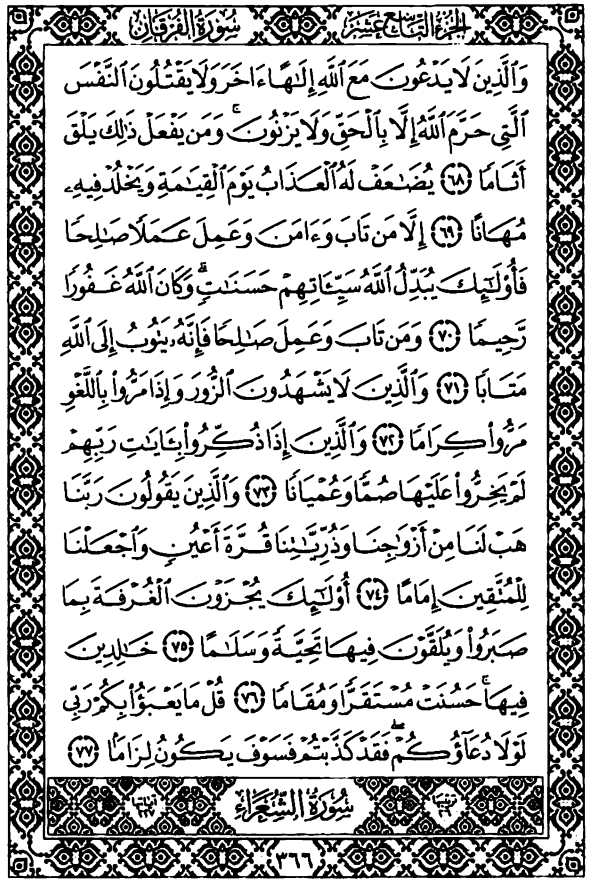 الجزء التاسع عشر سورة الفرقان
وَٱلَّذِينَ لَا يَدْعُونَ مَعَ ٱللَّهِ إِلَٰهًا ءَاخَرَ وَلَا يَقْتُلُونَ ٱلنَّفْسَ
ٱلَّتِى حَرَّمَ ٱللَّهُ إِلَّا بِٱلْحَقِّ وَلَا يَزْنُونَ ۚ وَمَن يَفْعَلْ ذَٰلِكَ يَلْقَ
أَثَامًا ٦٨ يُضَٰعَفْ لَهُ ٱلْعَذَابُ يَوْمَ ٱلْقِيَٰمَةِ وَيَخْلُدْ فِيهِۦ
مُهَانًا ٦٩ إِلَّا مَن تَابَ وَءَامَنَ وَعَمِلَ عَمَلًا صَٰلِحًا
فَأُو۟لَٰٓئِكَ يُبَدِّلُ ٱللَّهُ سَيِّـَٔاتِهِمْ حَسَنَٰتٍ ۗ وَكَانَ ٱللَّهُ غَفُورًا
رَّحِيمًا ٧٠ وَمَن تَابَ وَعَمِلَ صَٰلِحًا فَإِنَّهُۥ يَتُوبُ إِلَى ٱللَّهِ
مَتَابًا ٧١ وَٱلَّذِينَ لَا يَشْهَدُونَ ٱلزُّورَ وَإِذَا مَرُّوا۟ بِٱللَّغْوِ
مَرُّوا۟ كِرَامًا ٧٢ وَٱلَّذِينَ إِذَا ذُكِّرُوا۟ بِـَٔايَٰتِ رَبِّهِمْ
لَمْ يَخِرُّوا۟ عَلَيْهَا صُمًّا وَعُمْيَانًا ٧٣ وَٱلَّذِينَ يَقُولُونَ رَبَّنَا
هَبْ لَنَا مِنْ أَزْوَٰجِنَا وَذُرِّيَّٰتِنَا قُرَّةَ أَعْيُنٍ وَٱجْعَلْنَا
لِلْمُتَّقِينَ إِمَامًا ٧٤ أُو۟لَٰٓئِكَ يُجْزَوْنَ ٱلْغُرْفَةَ بِمَا
صَبَرُوا۟ وَيُلَقَّوْنَ فِيهَا تَحِيَّةً وَسَلَٰمًا ٧٥ خَٰلِدِينَ
فِيهَا ۚ حَسُنَتْ مُسْتَقَرًّا وَمُقَامًا ٧٦ قُلْ مَا يَعْبَؤُا۟ بِكُمْ رَبِّى
لَوْلَا دُعَآؤُكُمْ ۖ فَقَدْ كَذَّبْتُمْ فَسَوْفَ يَكُونُ لِزَامًۢا ٧٧
سُورَةُ الشُّعَرَاءِ
٣٦٦